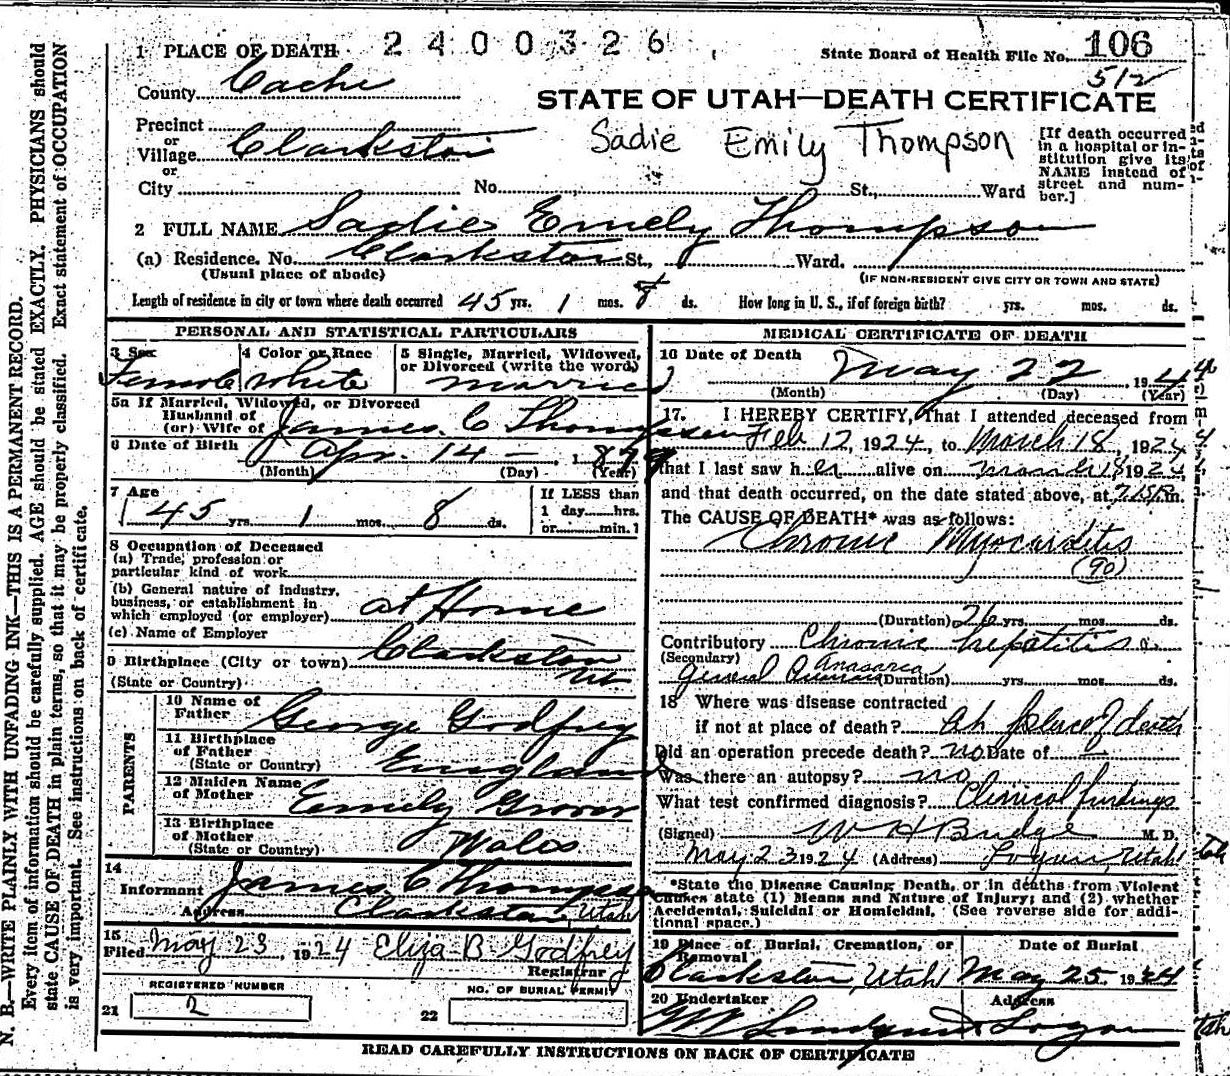 1 PLACE OF DEATH 2400326 State Board of Health File No. 106
512
County Cache
STATE OF UTAH—DEATH CERTIFICATE
Precinct
or
Village Clarkston
or
City No. St., Ward
Sadie Emily Thompson
[If death occurred
in a hospital or in-
stitution give its
NAME instead of
street and num-
ber.]
2 FULL NAME Sadie Emely Thompson
(a) Residence. No. Clarkston St., Ward.
(Usual place of abode) (IF NON-RESIDENT GIVE CITY OR TOWN AND STATE)
Length of residence in city or town where death occurred 45 yrs. 1 mos. 8 ds. How long in U. S., if of foreign birth? yrs. mos. ds.
PERSONAL AND STATISTICAL PARTICULARS
3 Sex
Female
4 Color or Race
White
5 Single, Married, Widowed,
or Divorced (write the word)
married
5a If Married, Widowed, or Divorced
Husband of
(or) Wife of James. C Thompson
6 Date of Birth Apr. 14 - 1879
(Month) (Day) (Year)
7 Age
45 yrs. 1 mos. 8 ds.
If LESS than
1 day hrs.
or min.1
8 Occupation of Deceased
(a) Trade, profession or
particular kind of work
(b) General nature of industry,
business, or establishment in
which employed (or employer) at Home
(c) Name of Employer
9 Birthplace (City or town) Clarkston
(State or Country)
PARENTS
10 Name of
Father George Godfrey
11 Birthplace
of Father
(State or Country) England
12 Maiden Name
of Mother Emely Grover
13 Birthplace
of Mother
(State or Country) Wales
14
Informant James. C Thompson
Address Clarkston, Utah
15
Filed May 23, 1924 Eliza B Godfrey
Registrar
REGISTERED NUMBER
21 2
NO. OF BURIAL PERMIT
22
MEDICAL CERTIFICATE OF DEATH
16 Date of Death
May 22 1924
(Month) (Day) (Year)
17. I HEREBY CERTIFY, That I attended deceased from
Feb 12, 1924, to March 18, 1924
that I last saw her alive on March 18 1924
and that death occurred, on the date stated above, at 7.15P.m.
The CAUSE OF DEATH* was as follows:
Chronic Myocarditis
(90)
(Duration) 26 yrs. mos. ds.
Contributory Chronic hepatitis
(Secondary)
Anasarca
General (Duration) yrs. mos. ds.
18 Where was disease contracted
if not at place of death? At place of death
Did an operation precede death? no Date of
Was there an autopsy? no
What test confirmed diagnosis? Clinical findings
(Signed) W H Budge M. D.
May 23 1924 (Address) Logan, Utah
*State the Disease Causing Death, or in deaths from Violent
Causes state (1) Means and Nature of Injury; and (2) whether
Accidental, Suicidal or Homicidal. (See reverse side for addi-
tional space.)
19 Place of Burial, Cremation, or
Removal
Clarkston, Utah
Date of Burial
May 25 1924
20 Undertaker Address
Logan
READ CAREFULLY INSTRUCTIONS ON BACK OF CERTIFICATE
N. B.—WRITE PLAINLY WITH UNFADING INK—THIS IS A PERMANENT RECORD.
Every item of information should be carefully supplied. AGE should be stated EXACTLY. PHYSICIANS should
state CAUSE OF DEATH in plain terms, so that it may be properly classified. Exact statement of OCCUPATION
is very important. See instructions on back of certificate.